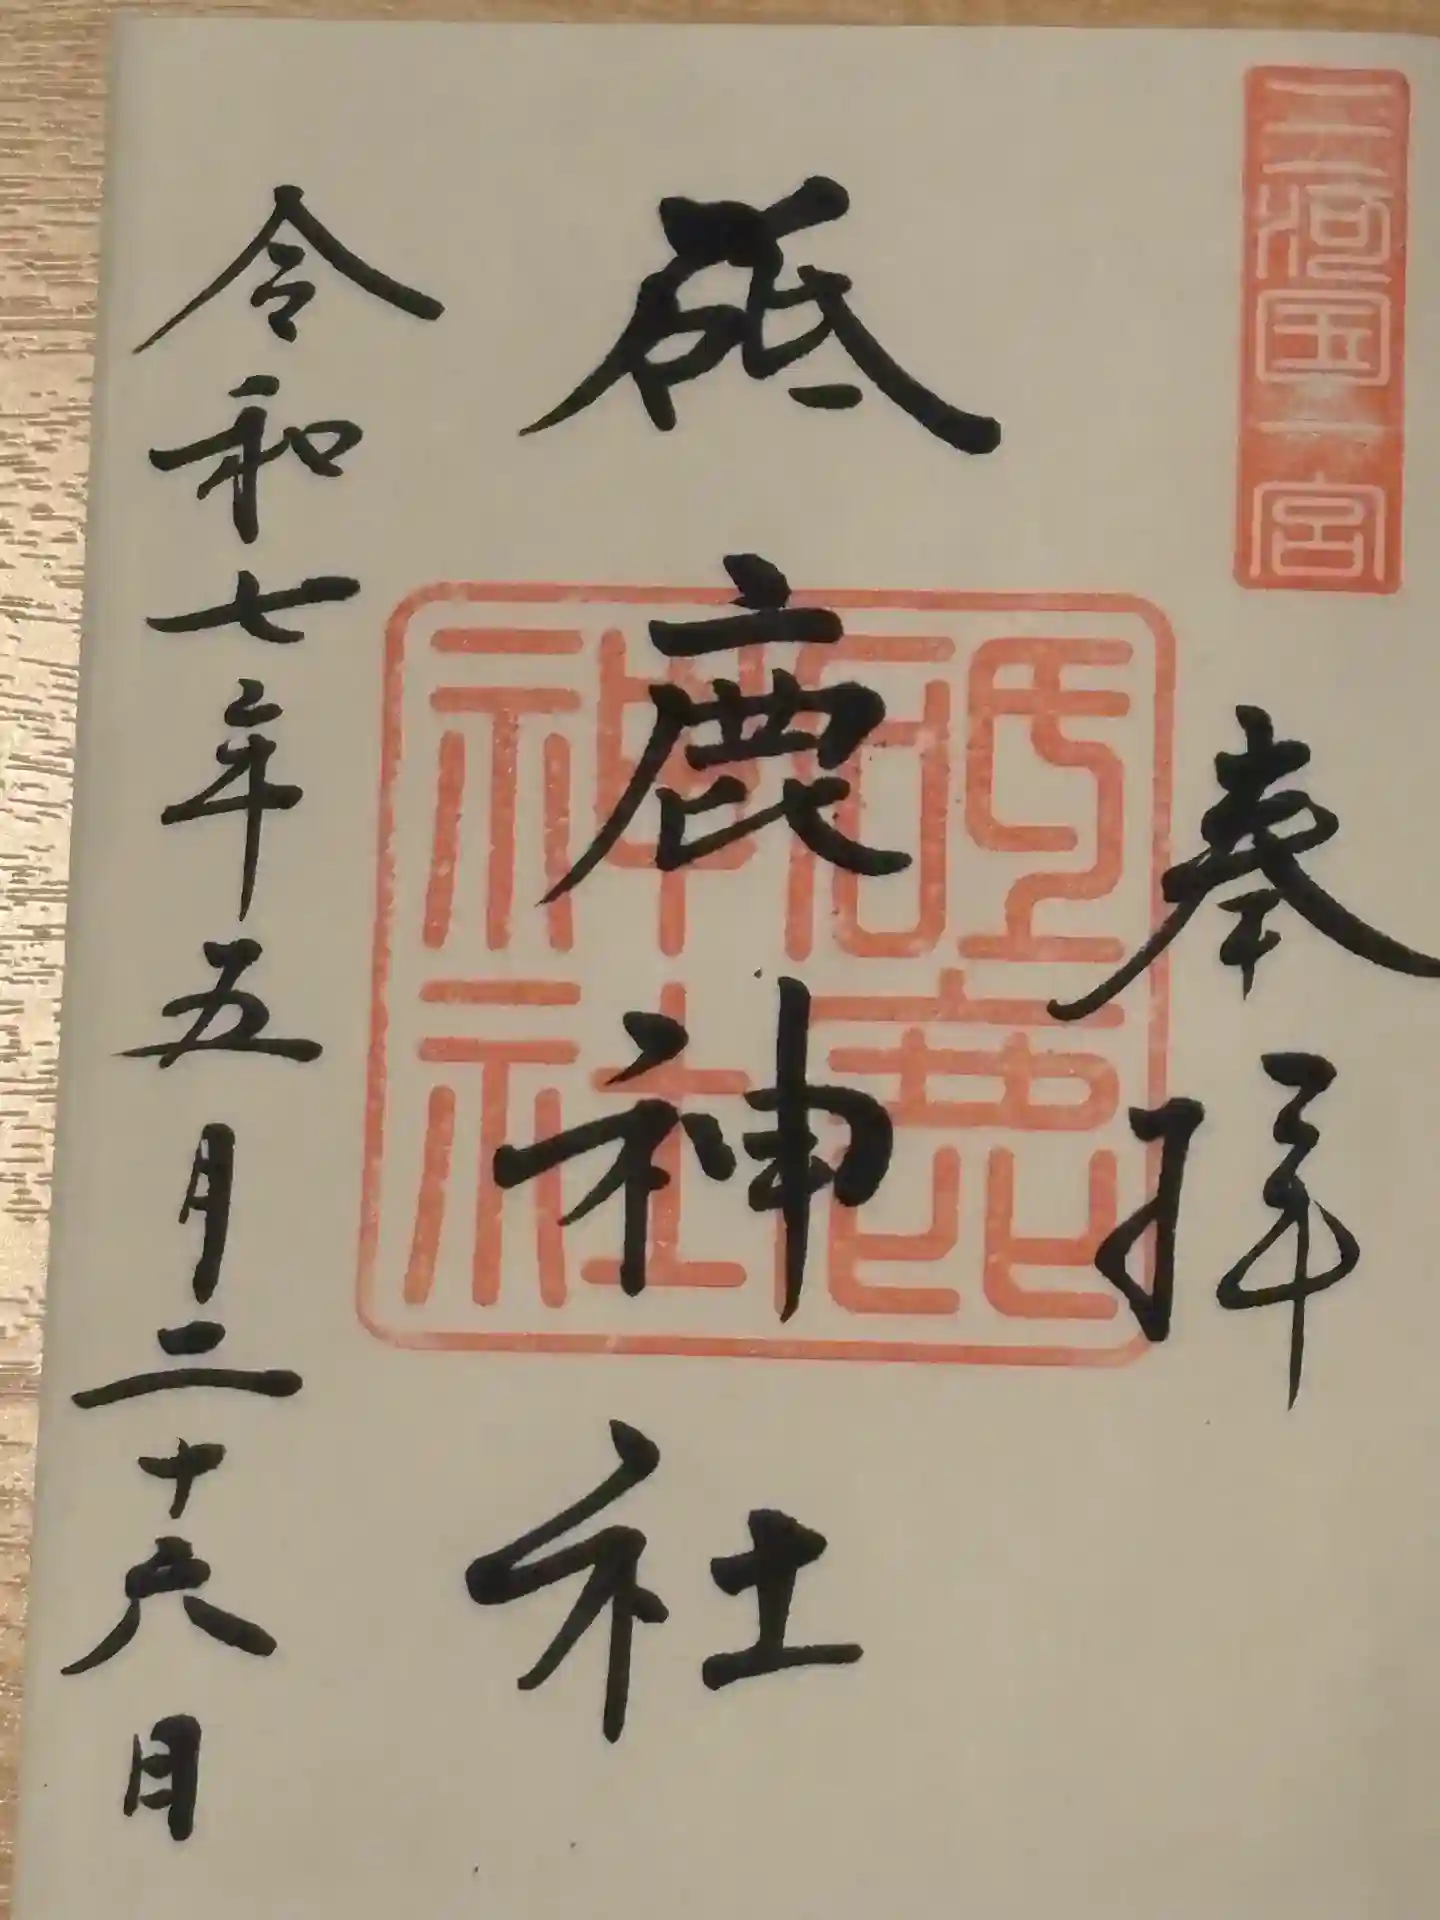 三河国一宮
奉拝
砥鹿神社
砥鹿
神社
令和七年五月二十六日